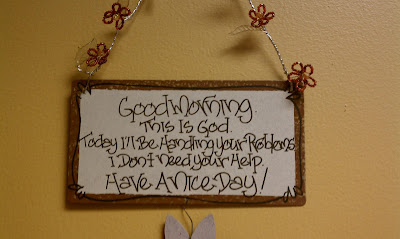 Good Morning.
This Is God.
Today I'll Be Handling Your Problems
I Don't Need Your Help.
Have A Nice Day!